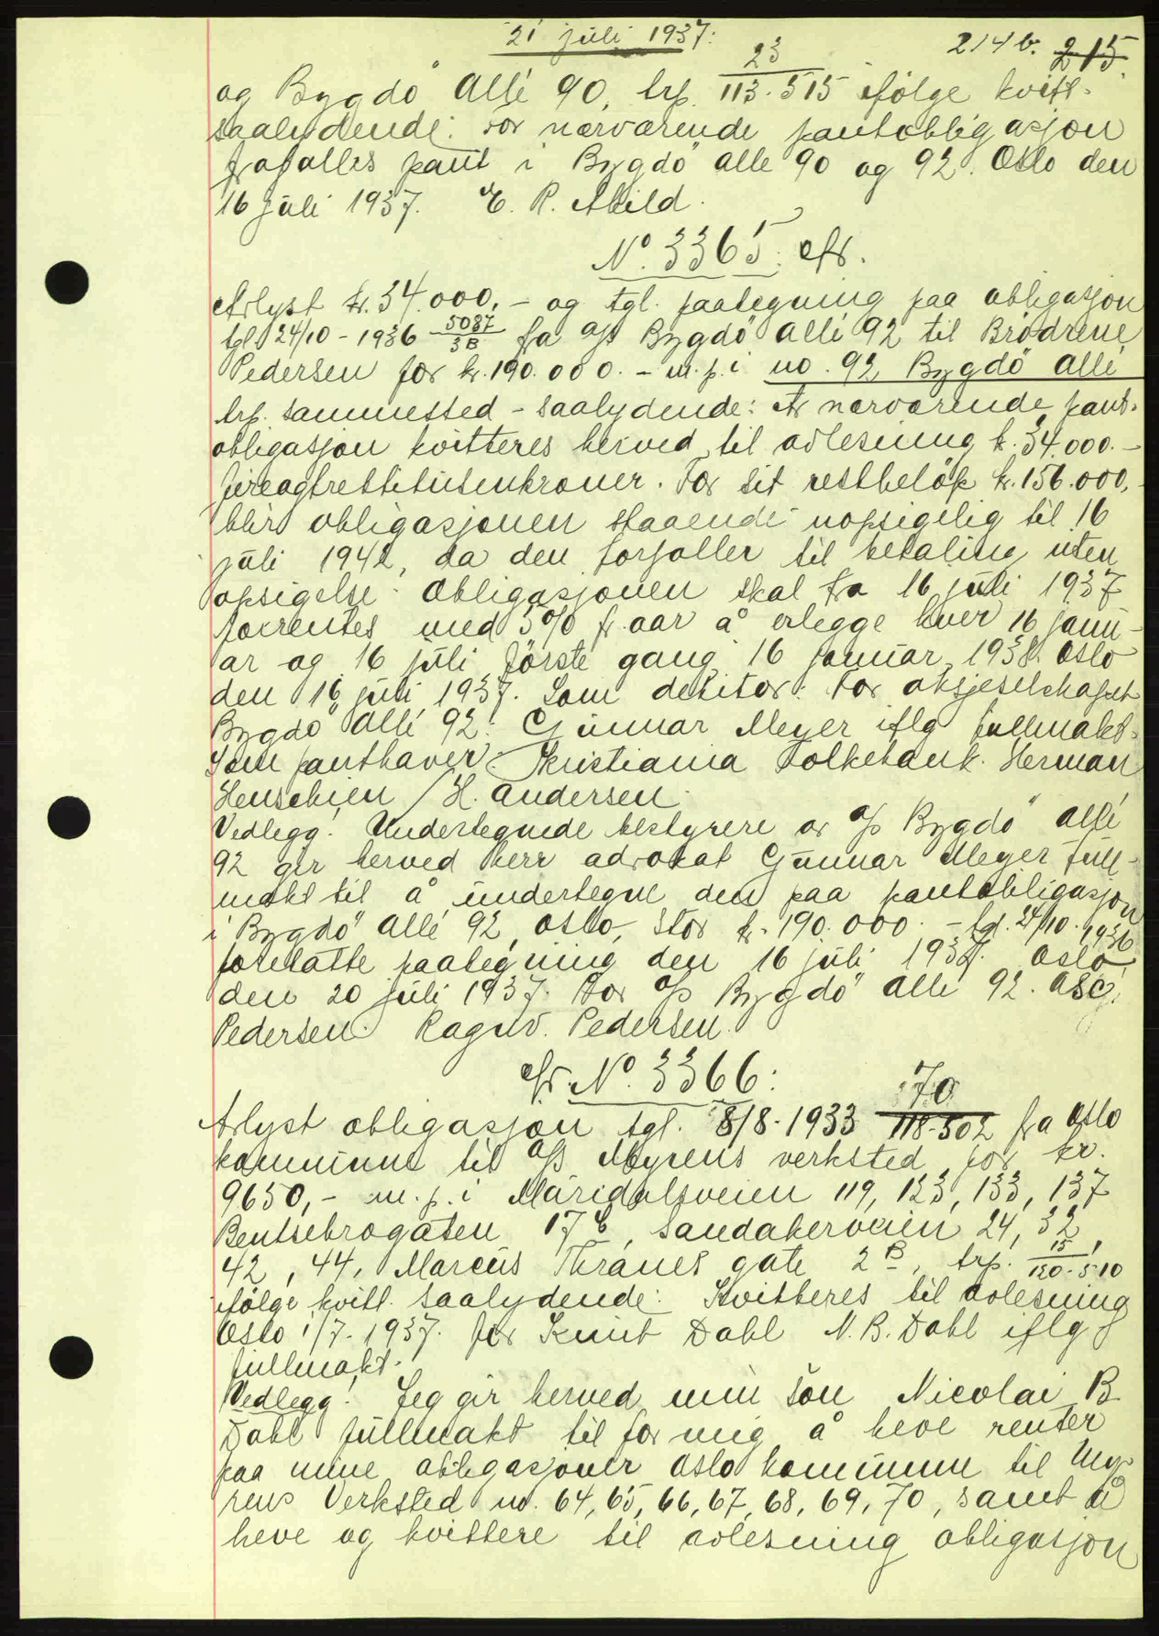 21 juli 1937:
214b. 215.
og Bygdö Allé 90, trp. 23/113.515 ifölge kvitt.
saalydende: For nærværende pantobligasjon
frafalles pant i Bygdö alle 90 og 92. Oslo den
16 juli 1937. E. R. Abild.
No. 3365: cfr.
Avlyst kr. 34.000,- og tgl. paategning paa obligasjon
tgl. 24/10-1936 5087/3B fra A/S Bygdö allé 92 til Brödrene
Pedersen for kr. 190.000.- m.p. i no. 92 Bygdö allé
trp. sammested - saalydende: Av nærværende pant-
obligasjon kvitteres herved til avlesning k. 34.000.-
fireogtrettitusenkroner. For sit restbelöp kr. 156.000,-
blir obligasjonen staaende uopsigelig til 16
juli 1942, da den forfaller til betaling uten
opsigelse. Obligasjonen skal fra 16 juli 1937
forrentes med 5% pr. aar å erlegge hver 16 janu-
ar og 16 juli förste gang 16 januar 1938. Oslo
den 16 juli 1937. Som debitor: For aksjeselskapet
Bygdö Allé 92: Gunnar Meyer iflg fullmakt.
Som panthaver: Kristiania Folkebank. Herman
Henschien / H. Andersen.
Vedlegg: Undertegnede bestyrere av A/S Bygdö allé
92 gir herved herr advokat Gunnar Meyer full-
makt til å undertegne den paa pantobligasjon
i Bygdö allé 92, Oslo, stor kr. 190.000.- tgl. 24/10.1936
forelatte paategning den 16 juli 1937. Oslo
den 20 juli 1937. For A/S Bygdö allé 92. Asg.
Pedersen. Ragnv. Pedersen.
cfr. No. 3366:
Avlyst obligasjon tgl. 8/8.1933 70/118.502 fra Oslo
kommune til A/S Myrens verksted for kr.
9650,- m.p. i Maridalsveien 119, 123, 133, 137
Bentsebrogaten 17 c, Sandakerveien 24, 32,
42, 44, Marcus Thranes gate 2 B, trp. 15/120.510
ifölge kvitt. saalydende: Kvitteres til avlesning
Oslo 1/7.1937. for Knut Dahl N. B. Dahl iflg
fullmakt.
Vedlegg: Jeg gir herved min sön Nicolai B.
Dahl fullmakt til for mig å heve renter
paa mine obligasjoner Oslo kommune til My-
rens Verksted nr. 64, 65, 66, 67, 68, 69, 70, samt å
heve og kvittere til avlesning obligasjon